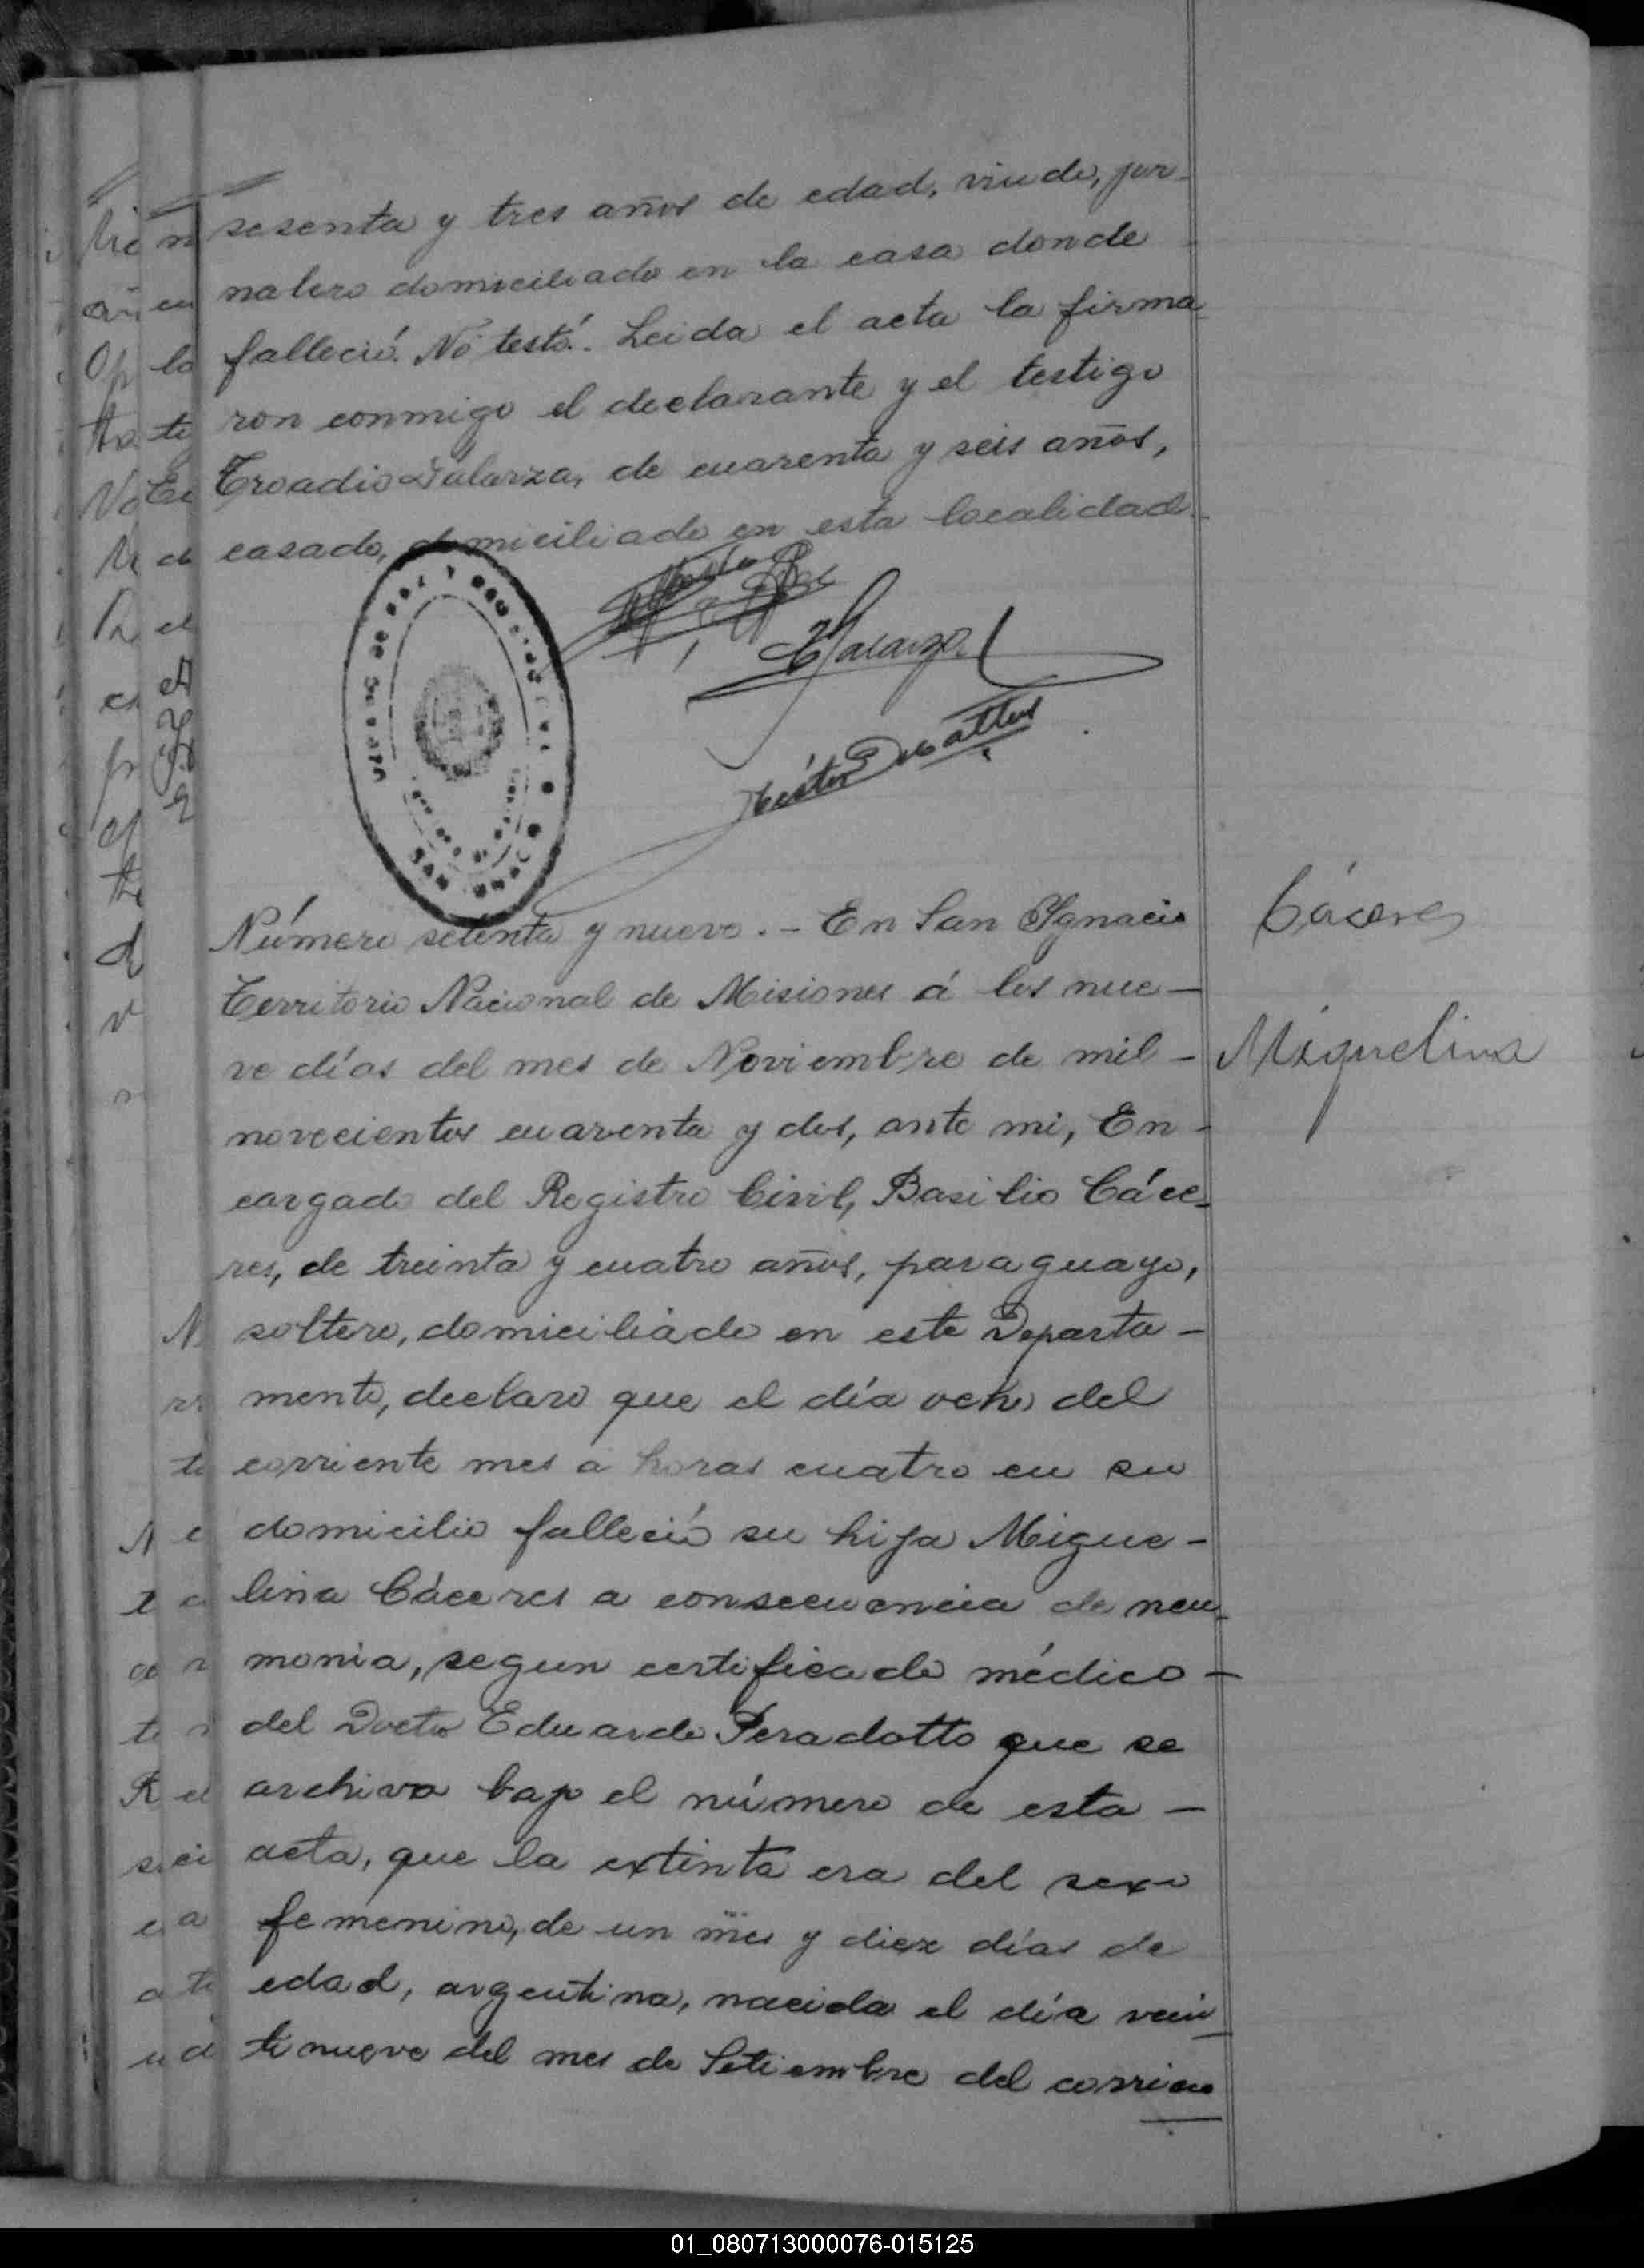 sesenta y tres años de edad, viudo, jor-
nalero domiciliado en la casa donde
falleció. No testó. Leida el acta la firma
ron conmigo el declarante y el testigo
Troadio Galarza, de cuarenta y seis años,
casado, domiciliado en esta localidad.
Galarza
Número setenta y nueve. - En San Ignacio
Cáceres
Territorio Nacional de Misiones á los nue-
ve días del mes de Noviembre de mil -
Miguelina
novecientos cuarenta y dos, ante mi, En-
cargado del Registro Civil, Basilio Cáce-
res, de treinta y cuatro años, paraguayo,
soltero, domiciliado en este Departa-
mento, declaro que el día ocho del
corriente mes a horas cuatro en su
domicilio falleció su hija Migue-
lina Cáceres a consecuencia de neu-
monia, segun certificado médico -
del Doctor Eduardo Peradotto que se
archiva bajo el número de esta -
acta, que la extinta era del sexo
femenino, de un mes y diez días de
edad, argentina, nacida el día vein
tinueve del mes de Setiembre del corrien
01_080713000076-015125